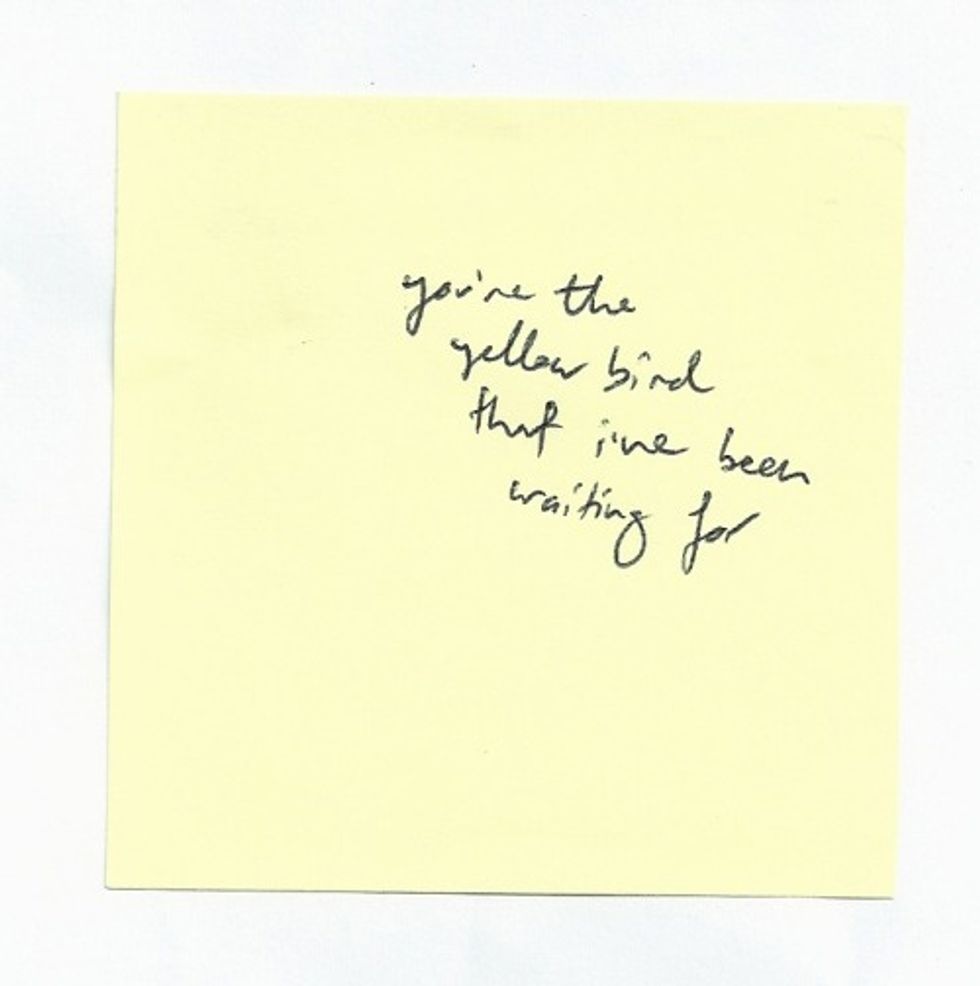 you're the
yellow bird
that i've been
waiting for